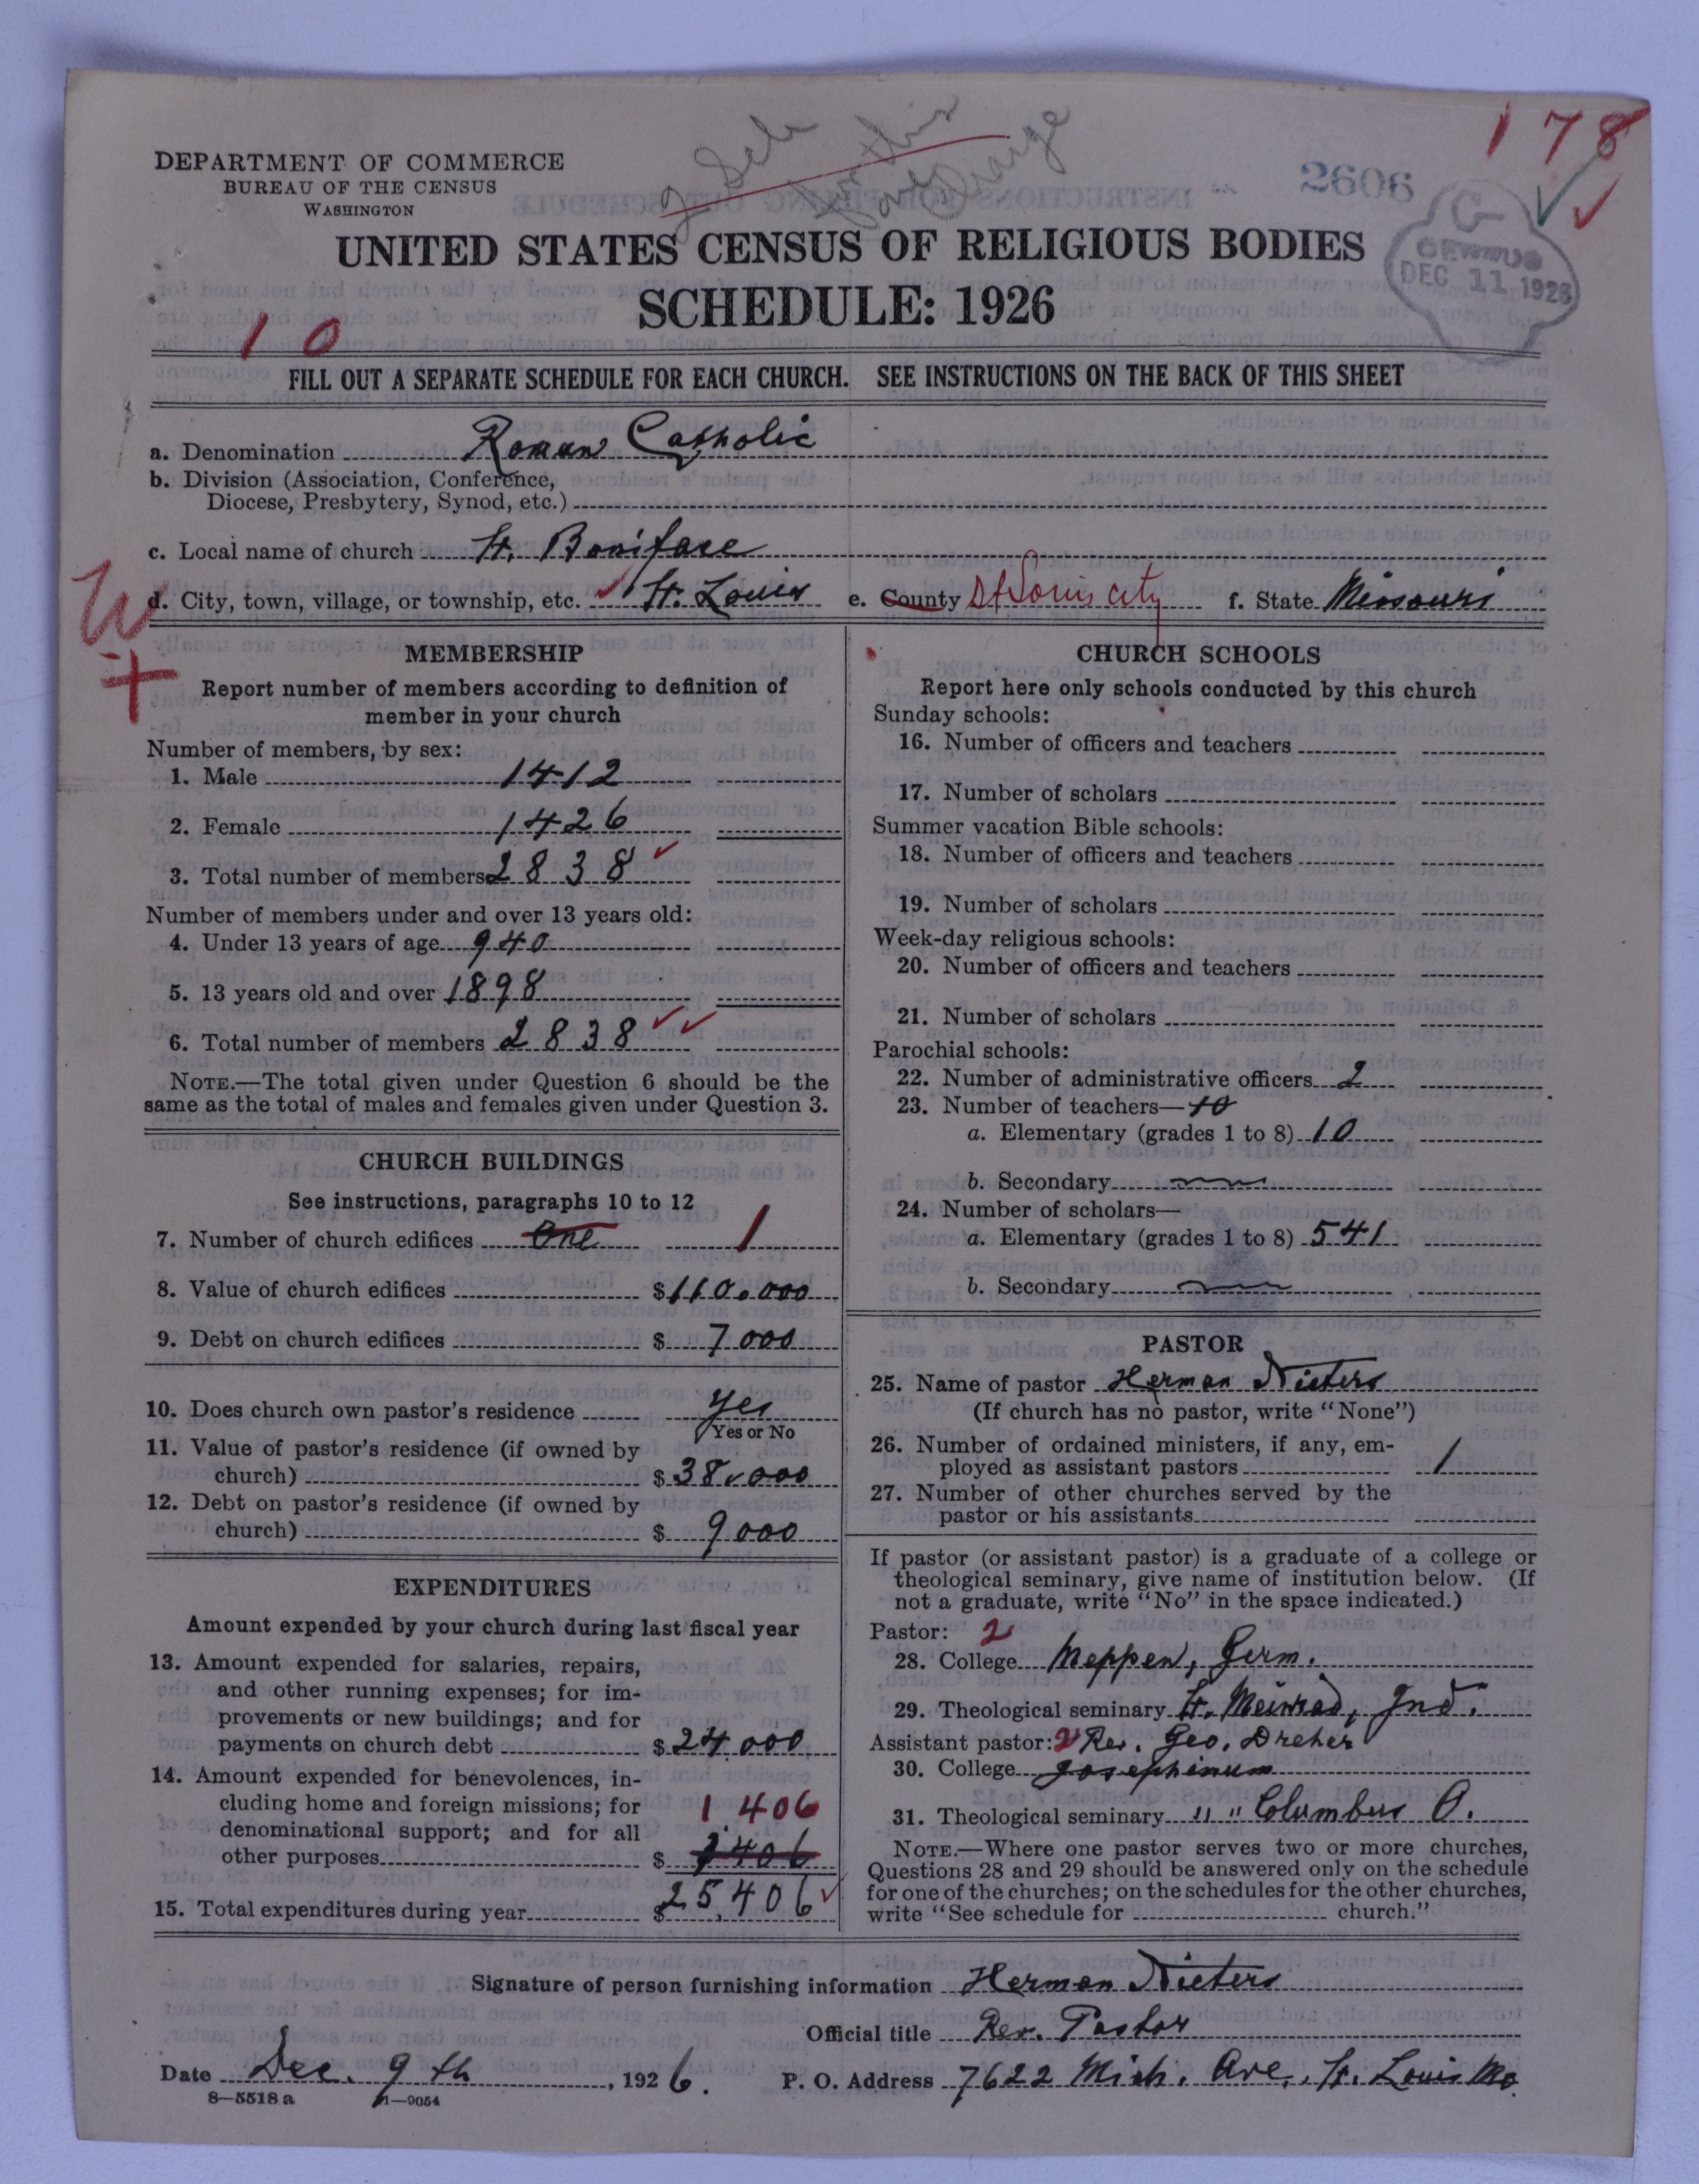 178
DEPARTMENT OF COMMERCE
BUREAU OF THE CENSUS
WASHINGTON
2606
UNITED STATES CENSUS OF RELIGIOUS BODIES
SCHEDULE: 1926
CENSUS
DEC 11 1926
10
FILL OUT A SEPARATE SCHEDULE FOR EACH CHURCH. SEE INSTRUCTIONS ON THE BACK OF THIS SHEET
a. Denomination Roman Catholic
b. Division (Association, Conference,
Diocese, Presbytery, Synod, etc.)
c. Local name of church St. Boniface
d. City, town, village, or township, etc. St. Louis e. County St Louis city f. State Missouri
W
+
MEMBERSHIP
Report number of members according to definition of
member in your church
Number of members, by sex:
1. Male 1412
2. Female 1426
3. Total number of members 2838
Number of members under and over 13 years old:
4. Under 13 years of age 940
5. 13 years old and over 1898
6. Total number of members 2838
NOTE.—The total given under Question 6 should be the
same as the total of males and females given under Question 3.
CHURCH BUILDINGS
See instructions, paragraphs 10 to 12
7. Number of church edifices One 1
8. Value of church edifices $110,000
9. Debt on church edifices $7000
10. Does church own pastor's residence Yes
Yes or No
11. Value of pastor's residence (if owned by
church) $38,000
12. Debt on pastor's residence (if owned by
church) $9000
EXPENDITURES
Amount expended by your church during last fiscal year
13. Amount expended for salaries, repairs,
and other running expenses; for im-
provements or new buildings; and for
payments on church debt $24,000
14. Amount expended for benevolences, in-
cluding home and foreign missions; for 1406
denominational support; and for all
other purposes $
15. Total expenditures during year $25,406
CHURCH SCHOOLS
Report here only schools conducted by this church
Sunday schools:
16. Number of officers and teachers
17. Number of scholars
Summer vacation Bible schools:
18. Number of officers and teachers
19. Number of scholars
Week-day religious schools:
20. Number of officers and teachers
21. Number of scholars
Parochial schools:
22. Number of administrative officers 2
23. Number of teachers— 10
a. Elementary (grades 1 to 8) 10
b. Secondary
24. Number of scholars—
a. Elementary (grades 1 to 8) 541
b. Secondary
PASTOR
25. Name of pastor Herman Nieters
(If church has no pastor, write "None")
26. Number of ordained ministers, if any, em-
ployed as assistant pastors 1
27. Number of other churches served by the
pastor or his assistants
If pastor (or assistant pastor) is a graduate of a college or
theological seminary, give name of institution below. (If
not a graduate, write "No" in the space indicated.)
Pastor: 2
28. College Meppen, Germ.
29. Theological seminary St. Meinrad, Ind.
Assistant pastor: 2 Rev. Geo. Dreher
30. College Josephinum
31. Theological seminary " " Columbus O.
NOTE.—Where one pastor serves two or more churches,
Questions 28 and 29 should be answered only on the schedule
for one of the churches; on the schedules for the other churches,
write "See schedule for church."
Signature of person furnishing information Herman Nieters
Official title Rev. Pastor
Date Dec. 9th, 1926. P. O. Address 7622 Mich. Ave., St. Louis Mo.
8—5518 a 11—9054